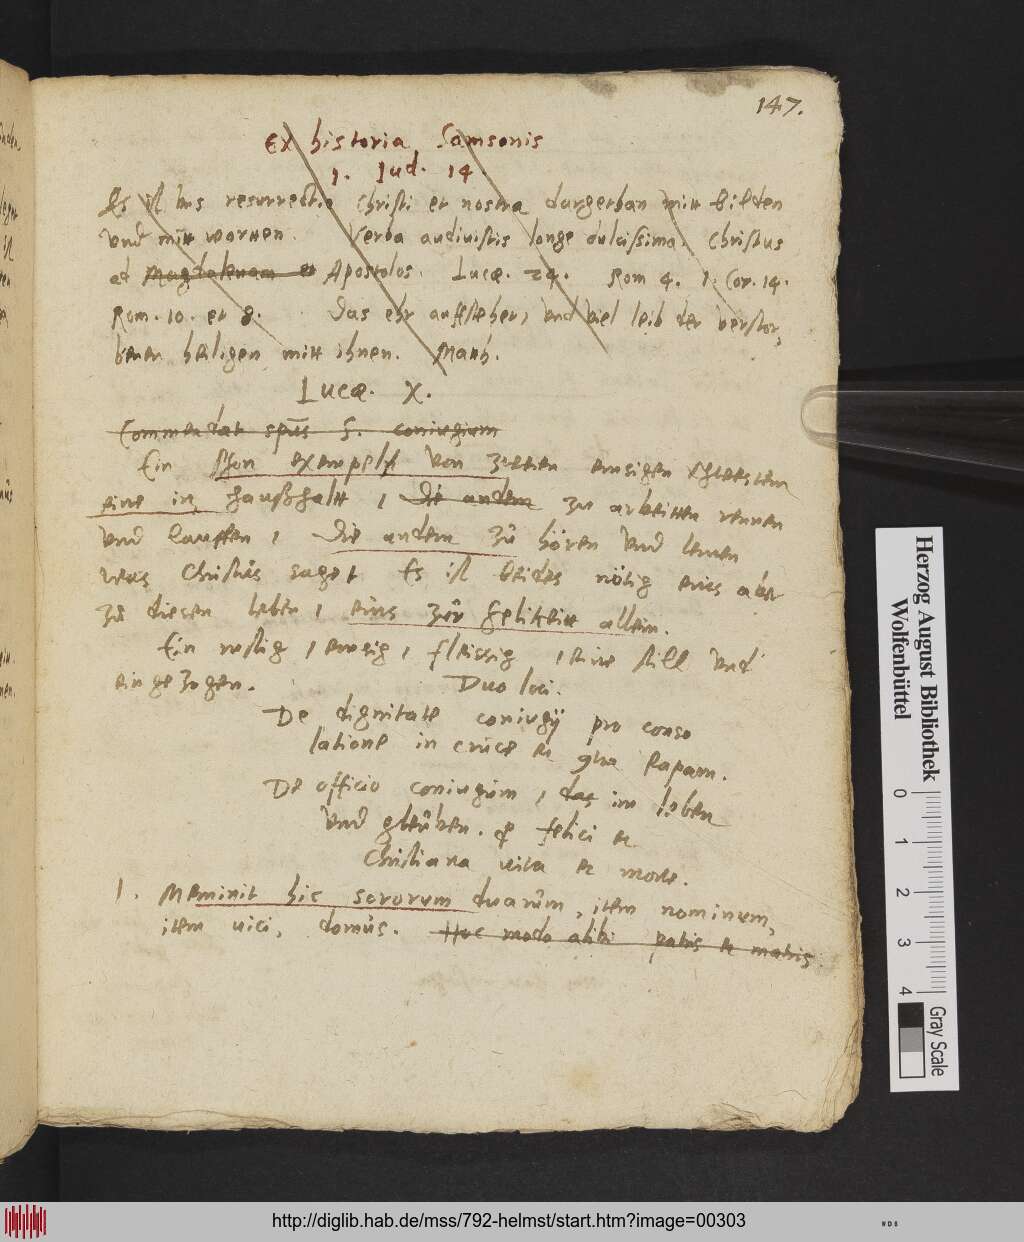 147.
Ex historia Samsonis
1. Iud. 14.
Es ist uns resurrectio Christi et nostra dargethan mitt bilden
und mitt worten. Verba audivistis longe dulcissima. Christus
ad Magdalenam et Apostolos. Lucæ. 24. Rom 4. 1. Cor. 14.
Rom. 10. et 8. Das ehr auffstehet, und viel leib der verstor,
benen heiligen mitt ihnen. Matth.
Lucæ. X.
Commendat spūs S. coniugium
Ein schon exempell von zweien einigen schwestern
eine in haußhalt, die andern zu arbeitten rennen
und lauffen, die andern zů hören und lernen
was Christůs saget Es ist beides nötig eins aber
zů diesen leben, eins zůr selikeitt allein.
Ein rustig, emsig, fleissig, eine still und
eingezogen. Duo loci.
De dignitate coniugij pro conso
latione in cruce et contra Papam.
De officio coniugum, das im leben
und gleůben. felici et
Christiana vita et morte.
1. Meminit hic sororum duarům, item nominum,
item vici, domůs. Hoc modo alibi patris et matris.
Herzog August Bibliothek
Wolfenbüttel
0 1 2 3 4
Gray Scale
http://diglib.hab.de/mss/792-helmst/start.htm?image=00303